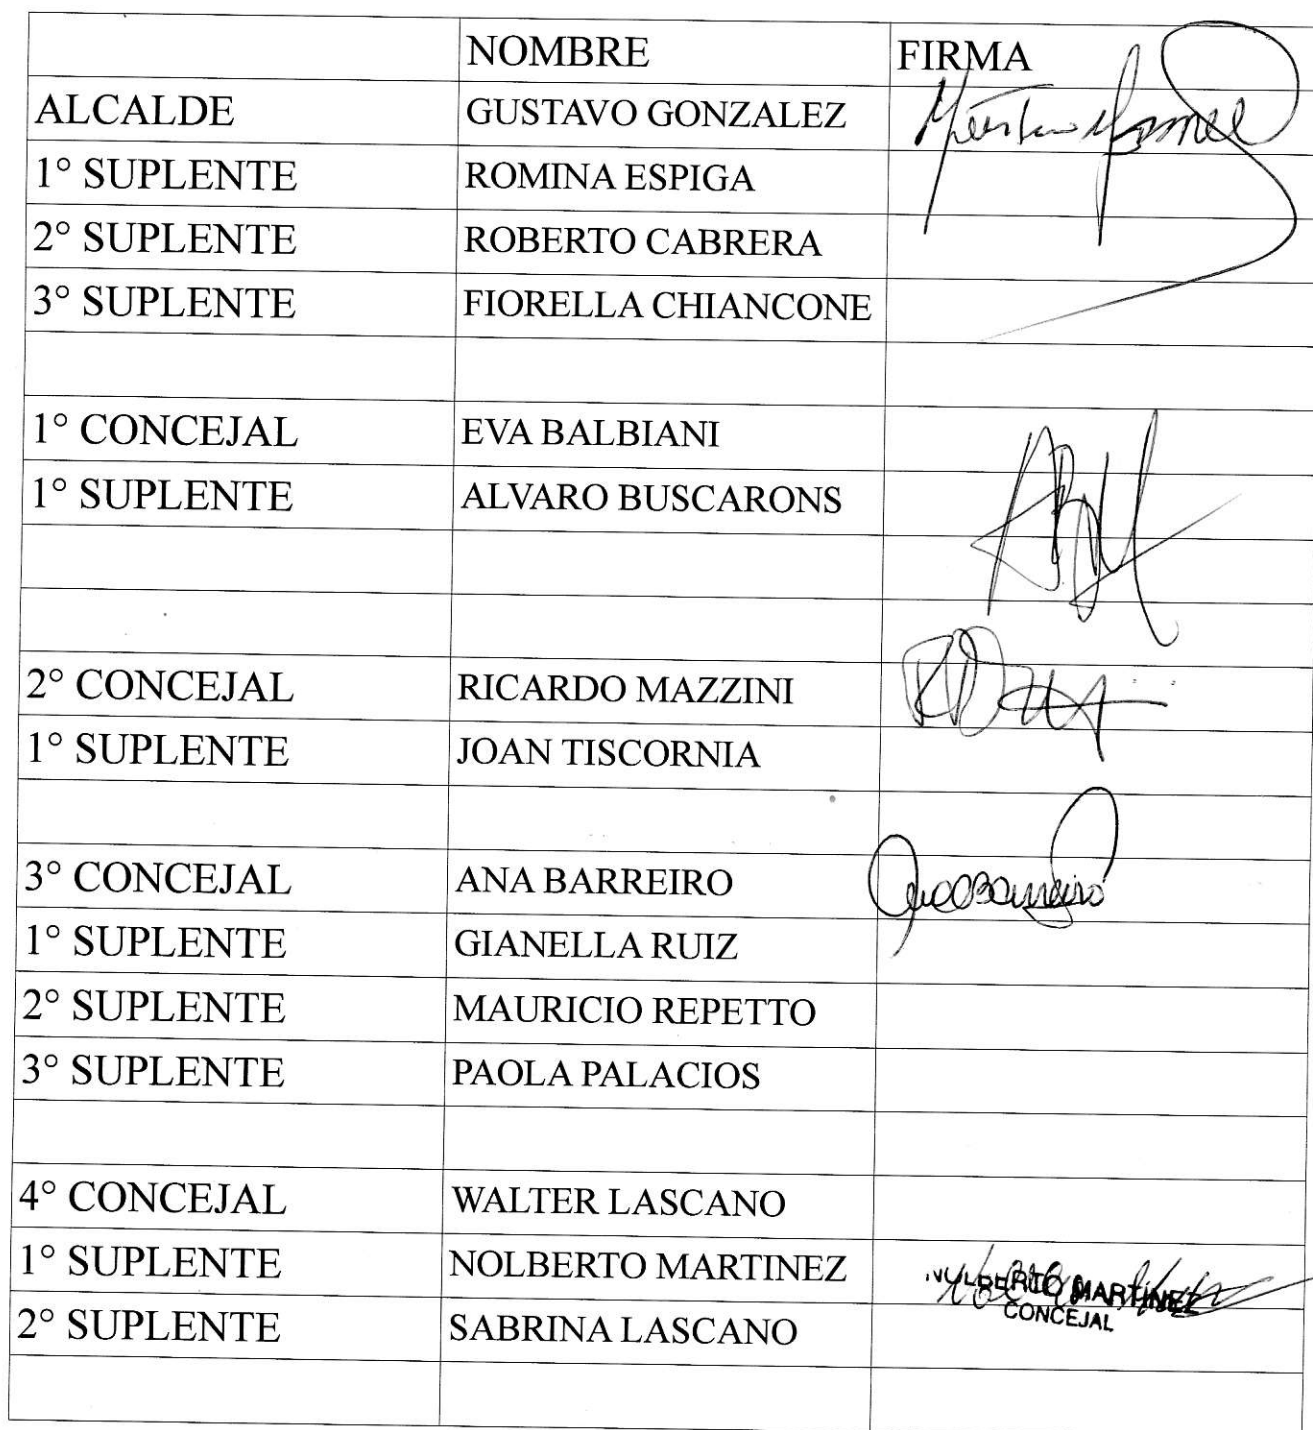 NOMBRE FIRMA
ALCALDE GUSTAVO GONZALEZ
1° SUPLENTE ROMINA ESPIGA
2° SUPLENTE ROBERTO CABRERA
3° SUPLENTE FIORELLA CHIANCONE
1° CONCEJAL EVA BALBIANI
1° SUPLENTE ALVARO BUSCARONS
2° CONCEJAL RICARDO MAZZINI
1° SUPLENTE JOAN TISCORNIA
3° CONCEJAL ANA BARREIRO
1° SUPLENTE GIANELLA RUIZ
2° SUPLENTE MAURICIO REPETTO
3° SUPLENTE PAOLA PALACIOS
4° CONCEJAL WALTER LASCANO
1° SUPLENTE NOLBERTO MARTINEZ NOLBERTO MARTINEZ
CONCEJAL
2° SUPLENTE SABRINA LASCANO